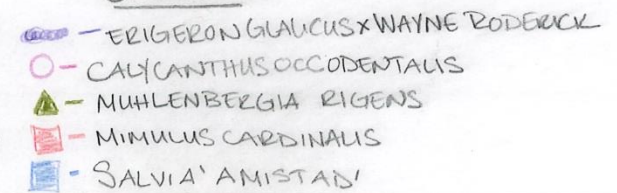 – ERIGERON GLAUCUS X WAYNE RODERICK
– CALYCANTHUS OCCODENTALIS
– MUHLENBERGIA RIGENS
– MIMULUS CARDINALIS
– SALVIA 'AMISTAD'